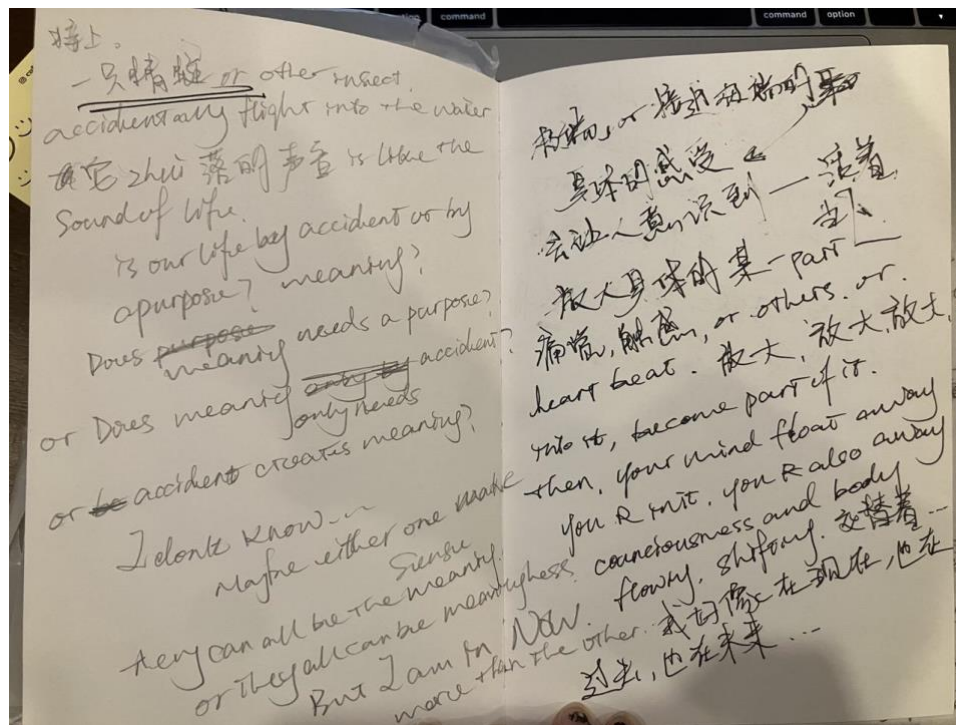 接上。
一只蜻蜓 or other insect.
accidientally flight into the water
它 zhui 落的声音 is like the
Sound of life.
is our life by accident or by
a purpose? meaning?
Does purpose meaning needs a purpose?
or Does meaning only by only needs accident?
or be accident creates meaning?
I don't know...
Maybe either one make
sense
they can all be the meaning.
or they all can be meaningless.
But I am in Now.
more than the other.
or 接近
具体的感受
会让人意识到一活着
放大具体的某一 part
痛觉, 触感, or others. or.
heart beat. 放大, 放大, 放大.
into it, become part of it.
then, your mind float away
you R in it. you R also away
counciousness and body
flowing, shifting. 交替着...
我好像在现在, 也在
过去, 也在未来...
command
command
option